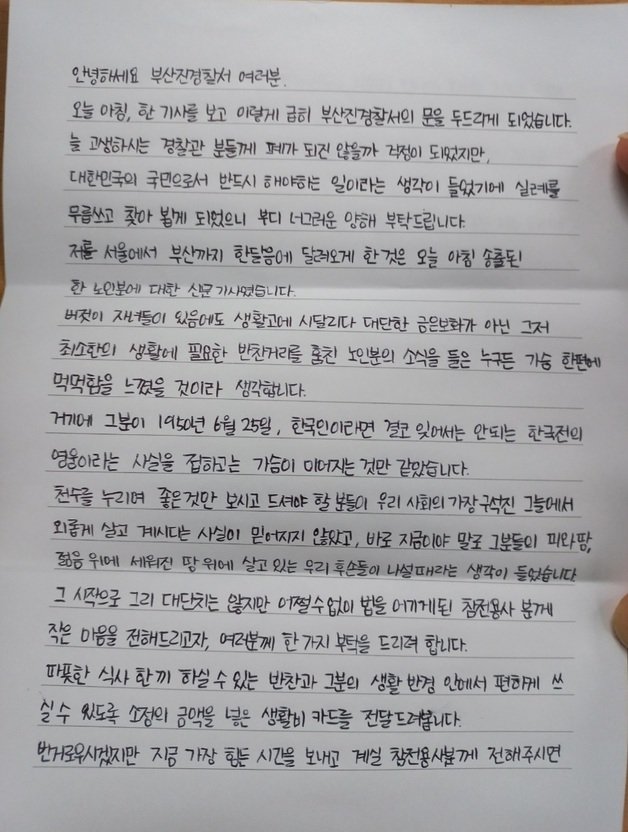 안녕하세요 부산진경찰서 여러분.
오늘 아침, 한 기사를 보고 이렇게 급히 부산진경찰서의 문을 두드리게 되었습니다.
늘 고생하시는 경찰관 분들께 폐가 되진 않을까 걱정이 되었지만,
대한민국의 국민으로서 반드시 해야하는 일이라는 생각이 들었기에 실례를
무릅쓰고 찾아 뵙게 되었으니 부디 너그러운 양해 부탁드립니다.
저를 서울에서 부산까지 한달음에 달려오게 한 것은 오늘 아침 송출된
한 노인분에 대한 신문기사였습니다.
버젓이 자녀들이 있음에도 생활고에 시달리다 대단한 금은보화가 아닌 그저
최소한의 생활에 필요한 반찬거리를 훔친 노인분의 소식을 들은 누구든 가슴 한편에
먹먹함을 느꼈을 것이라 생각합니다.
거기에 그분이 1950년 6월 25일, 한국인이라면 결코 잊어서는 안되는 한국전의
영웅이라는 사실을 접하고는 가슴이 미어지는 것만 같았습니다.
천수를 누리며 좋은것만 보시고 드셔야 할 분들이 우리 사회의 가장 구석진 그늘에서
외롭게 살고 계시다는 사실이 믿어지지 않았고, 바로 지금이야 말로 그분들의 피와 땀,
젊음 위에 세워진 땅 위에 살고 있는 우리 후손들이 나설 때라는 생각이 들었습니다
그 시작으로 그리 대단치는 않지만 어쩔 수 없이 법을 어기게 된 참전용사 분께
작은 마음을 전해드리고자, 여러분께 한 가지 부탁을 드리려 합니다.
따뜻한 식사 한 끼 하실 수 있는 반찬과 그분의 생활 반경 안에서 편하게 쓰
실 수 있도록 소정의 금액을 넣은 생활비 카드를 전달드려봅니다.
번거로우시겠지만 지금 가장 힘든 시간을 보내고 계실 참전용사분께 전해주시면